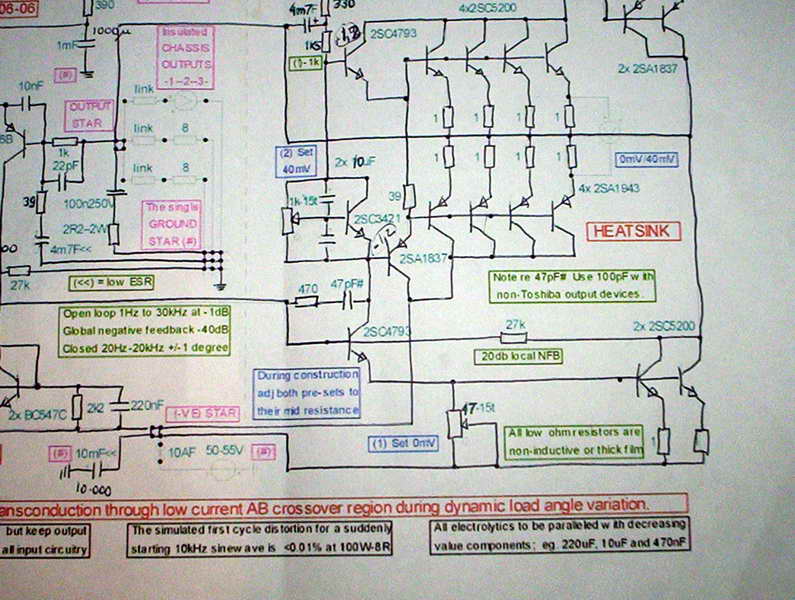 390
06-06
1000µ
1mF
(#)
Insulated
CHASSIS
OUTPUTS
-1--2--3-
4m7F
330
1K5
(1)-1k
2SC4793
4x2SC5200
2x 2SA1837
link
10nF
OUTPUT
STAR
link
8
1k
22pF
link
8
39
100n250V
The single
GROUND
STAR (#)
2R2-2W
4m7F<<
27k
(<<) = low ESR
(2) Set
40mV
2x 10uF
1k-15t
2SC3421
39
-1.2
2SA1837
1
1
1
1
1
1
1
1
0mV/40mV
4x 2SA1943
HEATSINK
Note re 47pF# Use 100pF with
non-Toshiba output devices.
470
47pF#
Open loop 1Hz to 30kHz at -1dB
Global negative feedback -40dB
Closed 20Hz-20kHz +/-1 degree
2SC4793
27k
2x 2SC5200
20db local NFB
During construction
adj both pre-sets to
their mid resistance
2x BC547C
2k2
220nF
(-VE) STAR
47-15t
(#)
10mF<<
10AF
50-55V
(#)
10-000
(1) Set 0mV
All low ohm resistors are
non-inductive or thick film
1
ansconduction through low current AB crossover region during dynamic load angle variation.
but keep output
all input circuitry
The simulated first cycle distortion for a suddenly
starting 10kHz sinewave is <0.01% at 100W-8R
All electrolytics to be paralleled with decreasing
value components; eg. 220uF, 10uF and 470nF